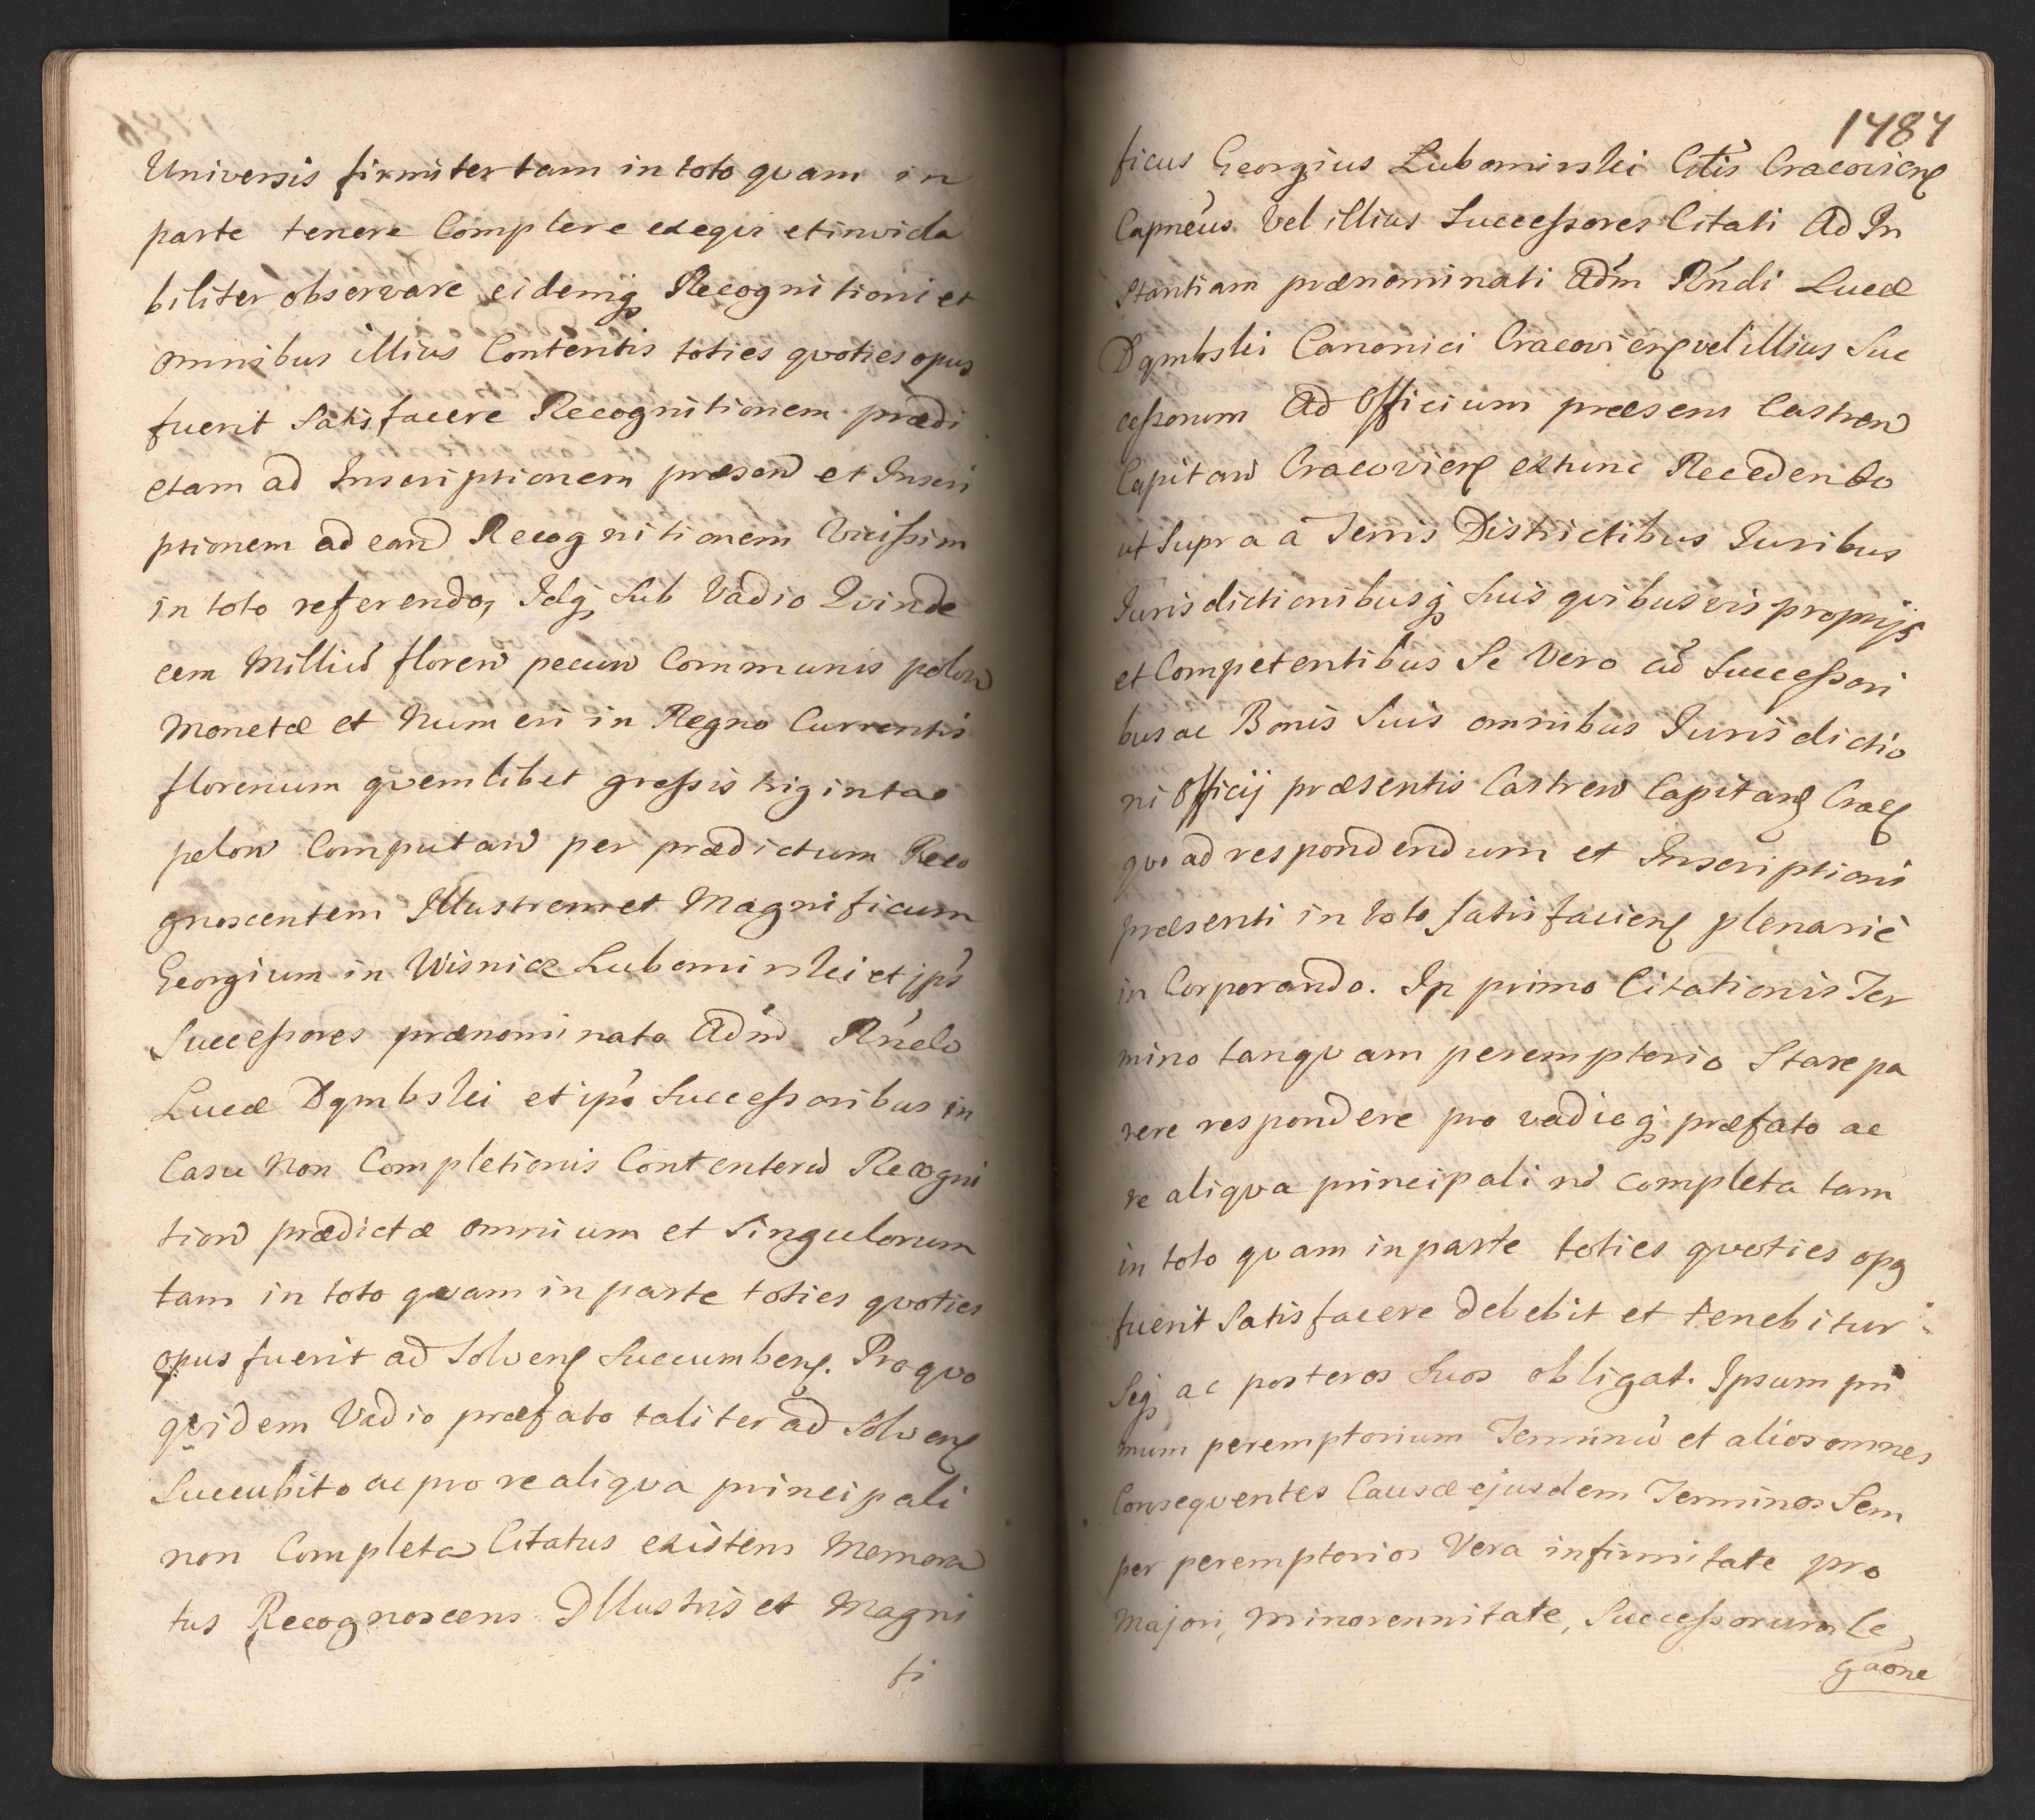 Universis firmiter tam in toto quam in
parte tenere Complere exeqvi et inviola
biliter observare eidemq Recognitioni et
omnibus illius Contentis toties qvoties opus
fuerit Satisfacere Recognitionem prædi
ctam ad Inscriptionem præsen et Inscri
ptionem ad eand Recognitionem Vicissim
in toto referendo, Idq Sub Vadio Qvinde
cem Milliu floren pecun Communis polon
Monetæ et Numeri in Regno Currentis
florenum qvemlibet grossis triginta
polon Computan per prædictum Reco
gnoscentem Illustrem et Magnificum
Georgium in Wisnicz Lubomirski et jps
Successores prænominato Adm Rndo
Lucæ Dąmbski et ips Successoribus in
Casu Non Completionis Contentoru Recogni
tion prædictæ omnium et Singulorum
tam in toto qvam in parte toties qvoties
opus fuerit ad Solven Succumben. Pro qvo
qvidem Vadio præfato taliter ad Solven
Succubito ac pro re aliqva principali
non Completa Citatus existens Memora
tus Recognoscens Illustris et Magni
fi
1787
ficus Georgius Lubomirski Cotis Cracovien
Capneus Vel illius Successores Citati Ad In
stantiam prænominati Adm Rndi Lucæ
Dąmbski Canonici Cracovien vel illius Suc
cessorum Ad Officium præsens Castren
Capitan Cracovien extunc Recedendo
ut Supra a Terris Districtibus Iuribus
Iurisdictionibusq Suis qvibusvis proprijs
et Competentibus Se Vero cu Successori
bus ac Bonis Suis omnibus Iurisdictio
ni Officij præsentis Castren Capitan Crac
qvo ad respondendum et Inscriptioni
præsenti in toto satisfacien plenarie
in Corporando. In primo Citationis Ter
mino tanqvam peremptorio Stare pa
rere respondere pro vadioq præfato ac
re aliqva principali no completa tam
in toto qvam in parte toties qvoties opq
fuerit Satisfacere debebit et tenebitur
Seq ac posteros Suos obligat. Ipsum pri
mum peremptorium Terminu et alios omnes
Conseqventes Causæ ejusdem Terminos Sem
per peremptorios Vera infirmitate pro
Majori, Minorennitate, Successorum Le
gaone